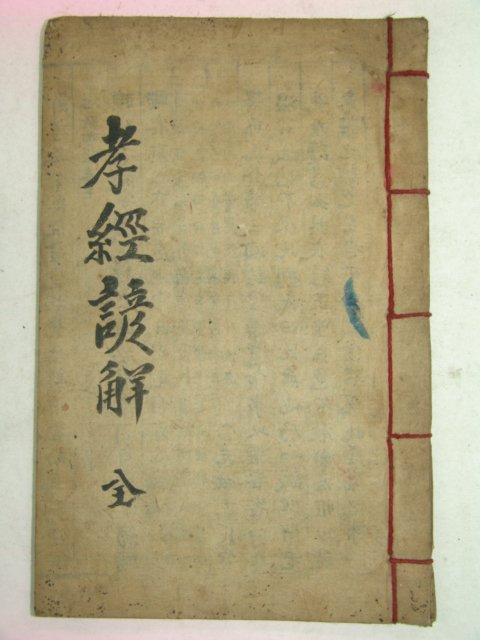 孝經諺解 全